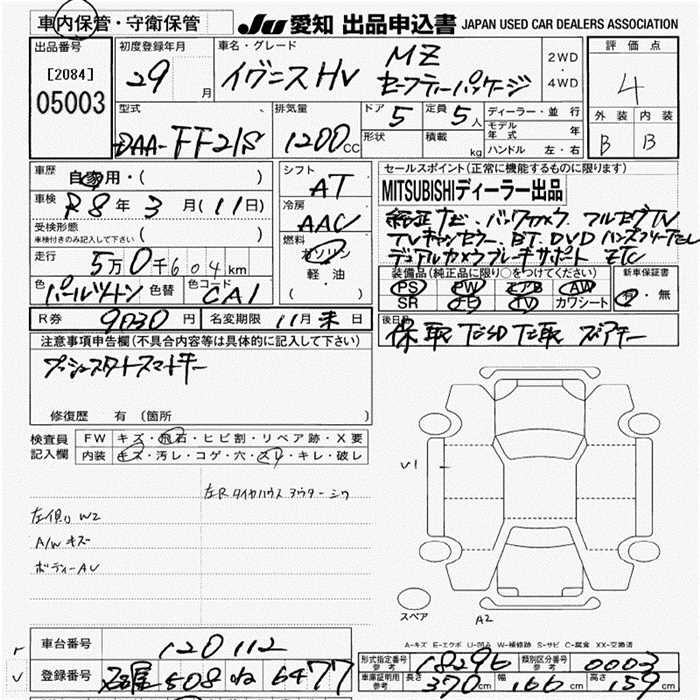 車内保管・守衛保管
JU 愛知 出品申込書 JAPAN USED CAR DEALERS ASSOCIATION
出品番号
[2084]
05003
初度登録年月
29 月
車名・グレード
イグニスHV MZ
セーフティーパッケージ
2WD
・
4WD
評価点
4
外装 内装
B B
型式
DAA-FF21S
排気量
1200cc
ドア 5
定員 5人
形状
積載 kg
ディーラー・並行
モデル年式 年
ハンドル 左・右
車歴
自家用・( )
車検
R8年3月(11日)
受検形態
車検付きのみ記入して下さい ( )
走行
5万0千604km
色 色替 色コード CA1
シフト
AT
冷房
AAC
燃料
ガソリン
軽油
( )
セールスポイント(正常に機能するものに限り)
MITSUBISHIディーラー出品
純正ナビ・バックカメラ フルセグTV
TVキャンセラー BT.DVD ハンズフリーTEL
デュアルカメラブレーキサポート ETC
装備品(純正品に限り○をつけてください)
PS PW エアB AW
SR TV カワシート
新車保証書
有・無
R券 9030円 名変期限 11月末日
後日品
保 取
注意事項申告欄(不具合内容等は具体的に記入して下さい)
プッシュスタートスマートキー
修復歴 有 (箇所 )
検査員
記入欄
FW キズ・飛石・ヒビ割・リペア跡・X要
内装 キズ・汚レ・コゲ・穴・スレ・キレ・破レ
左Rタイヤハウス アウター シワ
左側リ W2
A/W キズ
ボディーAU
V1
スペア
A2
A-キズ E-エクボ U-凹み W-補修跡 S-サビ C-腐食 XX-交換済
車台番号 120112
登録番号 名古屋 508 ね 6477
形式指定番号 参考 18296
類別区分番号 参考 0003
車庫証明用 参考 長さ 370cm 幅 166cm 高さ 159cm